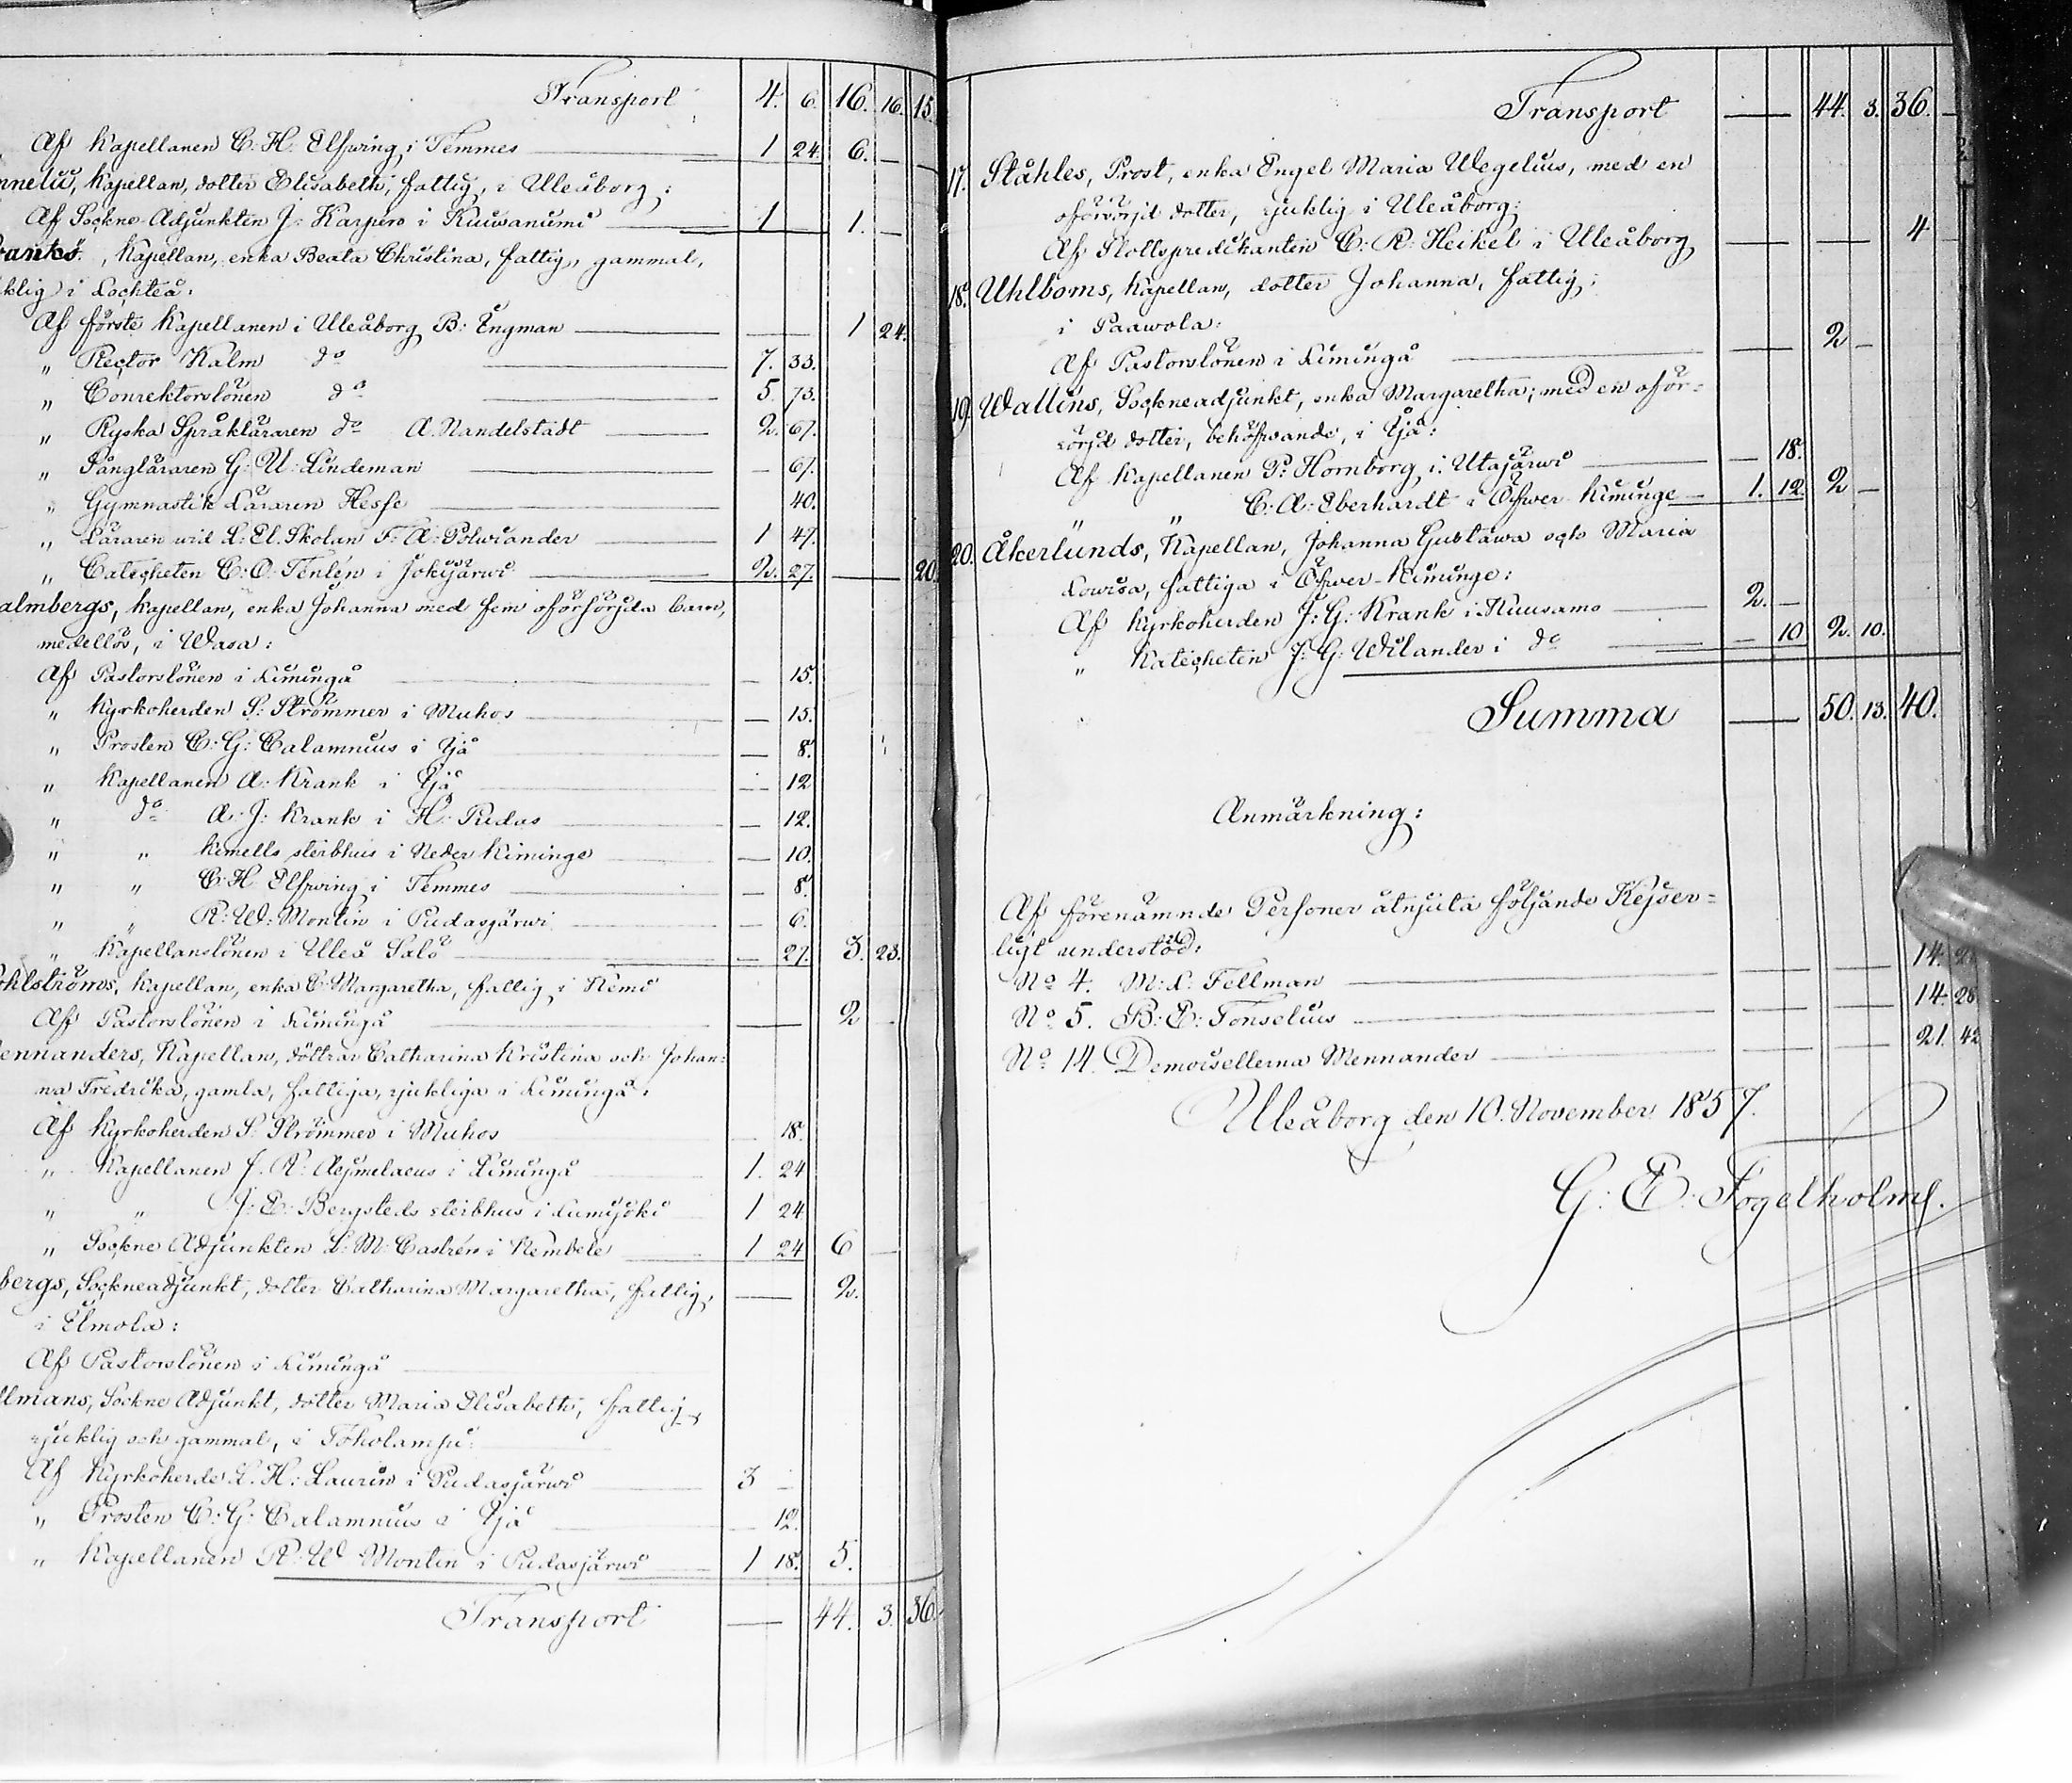 Transport 4. 6. 16. 16. 15.
Af Kapellanen C: H: Elfving i Temmes 1 24 6. —
nnelii, Kapellan, dotter Elisabeth, fattig, i Uleåborg;
Af Sockne-Adjunkten J: Karpero i Kuivaniemi 1 1. —
ranks, Kapellan, enka Beata Christina, fattig, gammal,
klig i Lochteå.
Af förste Kapellanen i Uleåborg B: Engman — — 1 24.
„ Rector Kalm do 7. 33.
„ Conrektorslönen do 5. 73.
„ Ryska Språkläraren do A. Nandelstadt 2. 67.
„ Sångläraren G: U: Lindeman — 67.
„ Gymnastik Läraren Hesse 40.
„ Läraren wid L: El. Skolan F: A: Polwiander 1 47.
„ Catecheten C: O: Tenlén i Jokijärwi 2. 27. — 20.
almbergs, Kapellan, enka Johanna med fem oförsörjda barn,
medellös, i Wasa:
Af Pastorslönen i Limingå — 15.
„ Kyrkoherden S: Strömmer i Muhos — 15.
„ Prosten C: G: Calamnius i Ijå — 8.
„ Kapellanen A. Krank i Ijå — 12
„ do A. J: Krank i H: Pudas — 12.
„ „ Kemells sterbhus i Neder Kiminge — 10.
„ „ C: H Elfving i Temmes — 8.
„ „ R: W: Montin i Pudasjärwi — 6.
„ Kapellanslönen i Uleå Salo — 27. 3. 23.
ohlströms, Kapellan, enka C: Margaretha, fattig, i Kemi
Af Pastorslönen i Limingå — 2 —
ennanders, Kapellan, döttrar Catharina Kristina och Johan-
na Fredrika, gamla, fattiga, sjukliga i Limingå:
Af Kyrkoherden S: Strömmer i Muhos — 18.
„ Kapellanen J. R: Aejmelaeus i Limingå 1. 24
„ „ J: E: Bergsteds sterbhus i Lumijoki 1 24
„ Sockne Adjunkten L: M: Castrén i Kembele 1 24 6 —
bergs, Sockneadjunkt, dotter Catharina Margaretha, fattig, — 2.
i Elmola:
Af Pastorslönen i Limingå
llmans, Sockne Adjunkt, dotter Maria Elisabeth, fattig,
sjuklig och gammal, i Toholampi:
Af Kyrkoherde L. H: Laurin i Pudasjärwi 3 —
„ Prosten C: G: Calamnius i Ijå — 12.
„ Kapellanen R: W Montin i Pudasjärwi 1 18. 5.
Transport — 44. 3. 36.
Transport — 44. 3. 36. —
17. Ståhles, Prost, enka Engel Maria Wegelius, med en
oförsörjd dotter, sjuklig i Uleåborg:
Af Slottspredikanten C: R: Heikel i Uleåborg — — — 4
18. Uhlboms, Kapellan, dotter Johanna, fattig,
i Paawola:
Af Pastorslönen i Limingå — 2 —
19. Wallins, Sockneadjunkt, enka Margaretha, med en oför-
sörjd dotter, behöfwande, i Ijå:
Af Kapellanen P: Hornborg i Utajärwi — 18.
„ „ C: A: Eberhardt i Öfwer Kiminge 1. 12. 2 —
20. Åkerlunds, Kapellan, Johanna Gustawa och Maria
Lowisa, fattiga i Öfwer-Kiminge:
Af Kyrkoherden J: G: Krank i Kuusamo 2. —
„ Katecheten J: G: Wilander i do — 10 2. 10.
Summa — 50. 13. 40.
Anmärkning:
Af förenämnde Personer åtnjuta följande Kejser-
ligt understöd:
No 4. M: L: Fellman — — 14.
No 5. B: E: Tonselius — — 14. 28
No 14. Demoisellerna Mennander — — 21. 42
Uleåborg den 10. November 1857.
G: E: Fogelholm.